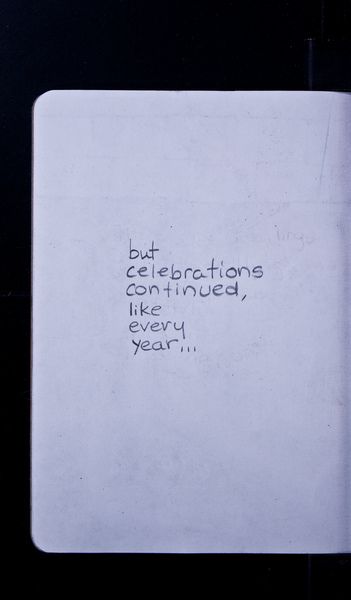 but
celebrations
continued,
like
every
year...